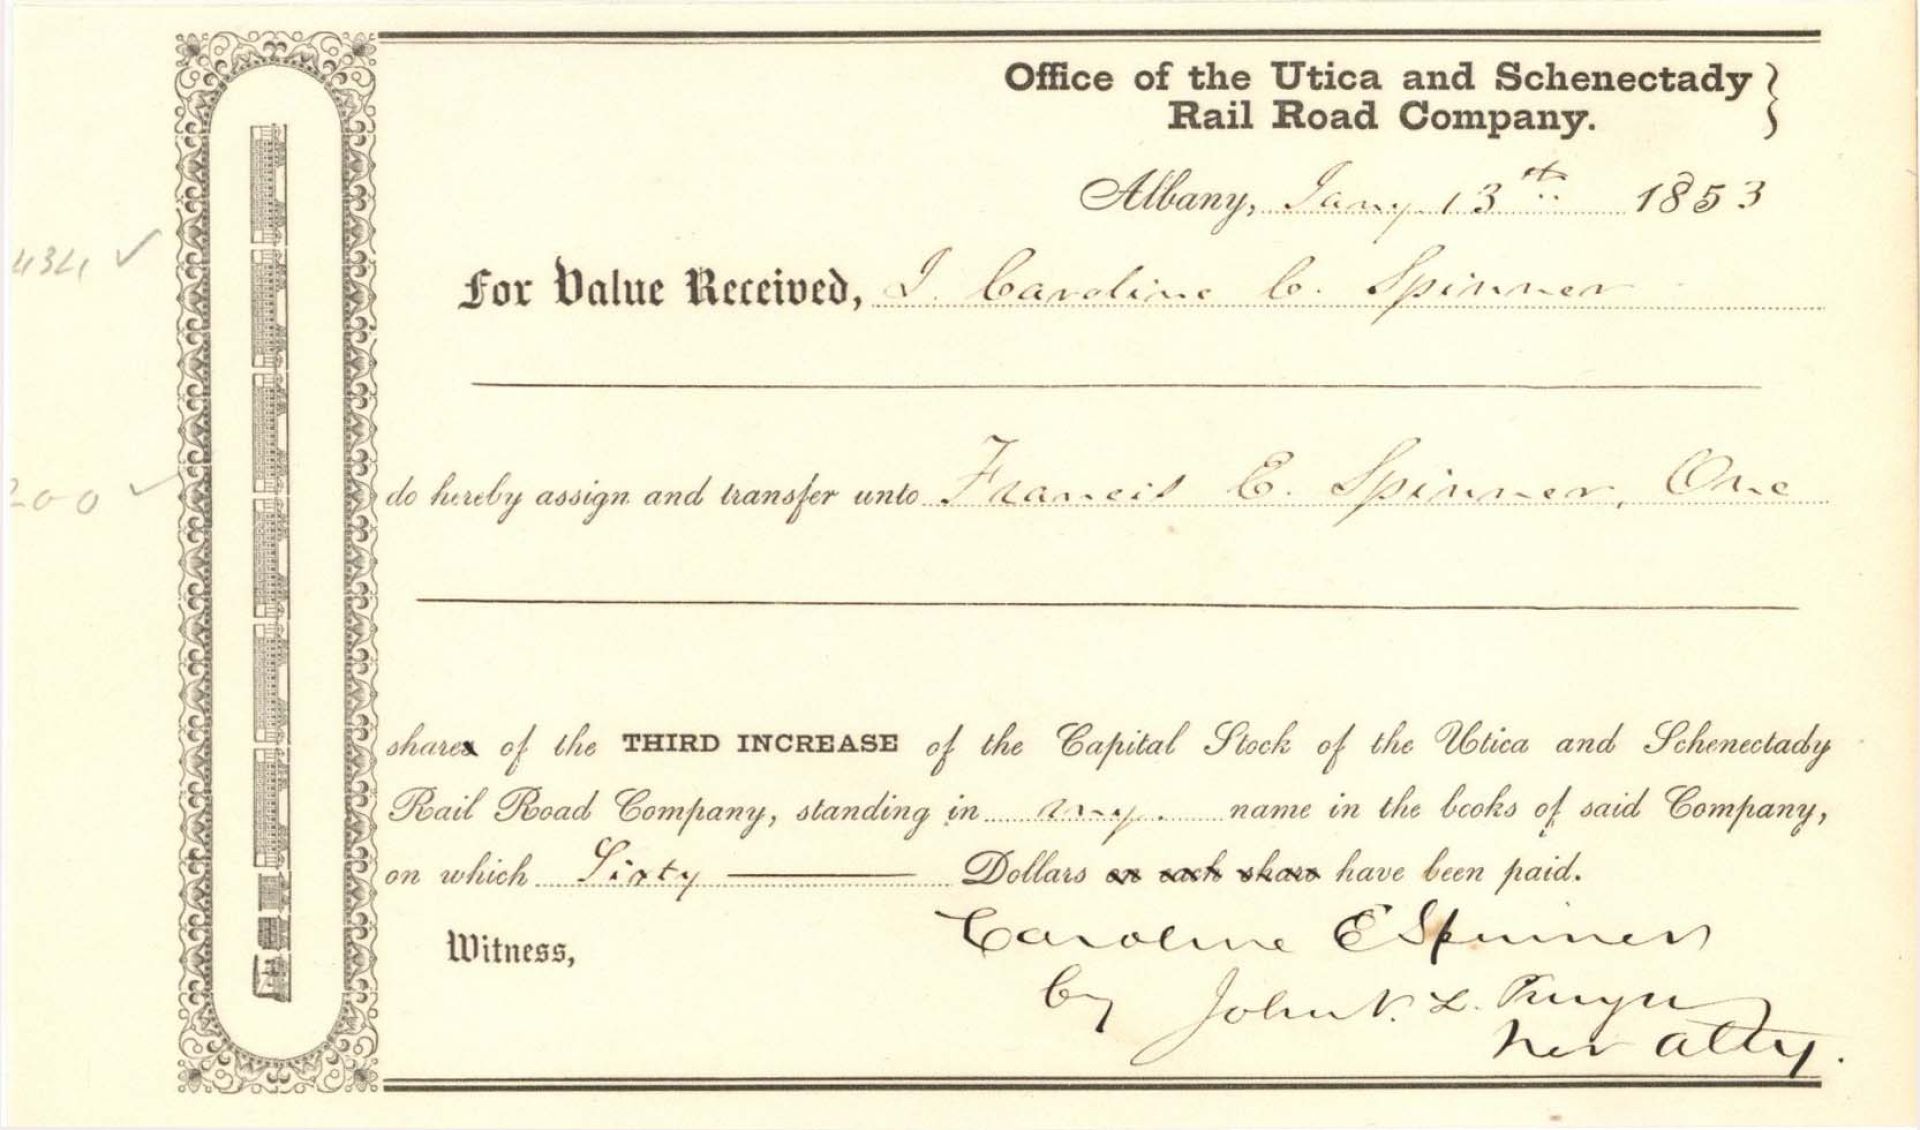 Office of the Utica and Schenectady
Rail Road Company.
Albany, Jany. 13th 1853
434 ✓
For Value Received, I Caroline C. Spinner
do hereby assign and transfer unto Francis E. Spinner, One
200 ✓
shares of the THIRD INCREASE of the Capital Stock of the Utica and Schenectady
Rail Road Company, standing in my name in the books of said Company,
on which Sixty Dollars on each share have been paid.
Witness,
Caroline E Spinner
by John V. L. Pruyn
her atty.